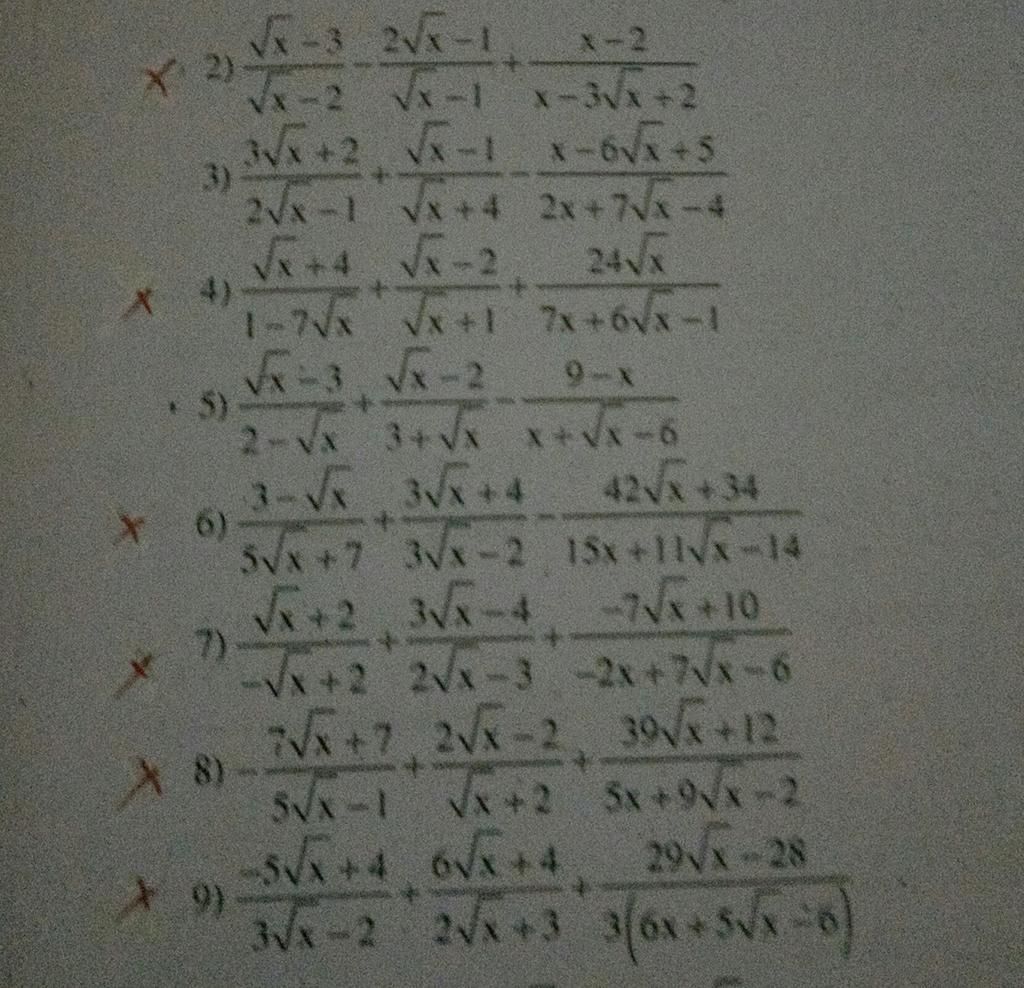 2) (√x−3)/(√x−2) − (2√x−1)/(√x−1) + (x−2)/(x−3√x+2)
3) (3√x+2)/(2√x−1) + (√x−1)/(√x+4) − (x−6√x+5)/(2x+7√x−4)
4) (√x+4)/(1−7√x) + (√x−2)/(√x+1) + (24√x)/(7x+6√x−1)
5) (√x−3)/(2−√x) + (√x−2)/(3+√x) − (9−x)/(x+√x−6)
6) (3−√x)/(5√x+7) + (3√x+4)/(3√x−2) − (42√x+34)/(15x+11√x−14)
7) (√x+2)/(−√x+2) + (3√x−4)/(2√x−3) + (−7√x+10)/(−2x+7√x−6)
8) −(7√x+7)/(5√x−1) + (2√x−2)/(√x+2) + (39√x+12)/(5x+9√x−2)
9) (−5√x+4)/(3√x−2) + (6√x+4)/(2√x+3) + (29√x−28)/(3(6x+5√x−6))